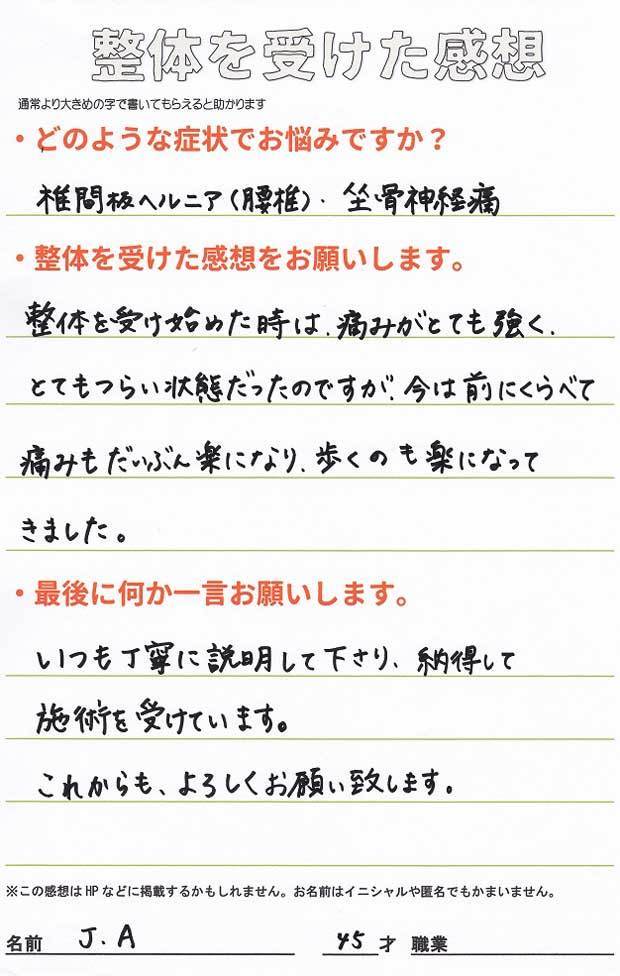 整体を受けた感想
通常より大きめの字で書いてもらえると助かります
・どのような症状でお悩みですか？
椎間板ヘルニア(腰椎)・坐骨神経痛
・整体を受けた感想をお願いします。
整体を受け始めた時は、痛みがとても強く、
とてもつらい状態だったのですが、今は前にくらべて
痛みもだいぶん楽になり、歩くのも楽になって
きました。
・最後に何か一言お願いします。
いつも丁寧に説明して下さり、納得して
施術を受けています。
これからも、よろしくお願い致します。
※この感想はHPなどに掲載するかもしれません。お名前はイニシャルや匿名でもかまいません。
名前 J.A 45才 職業